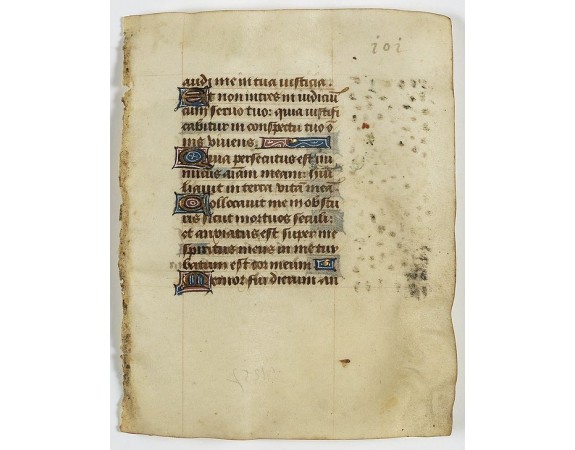 101
audi me in tua iusticia.
Et non intres in iudiciū
cum seruo tuo: quia iustifi
cabitur in conspectu tuo ō
nis viuens
Quia persecutus est ini
micus aīam meam: hūi
liauit in terra vitā meā
Collocauit me in obscu
ris sicut mortuos seculi:
et anxiatus est super me
spiritus meus in me tur
batum est cor meum
Memor fui dierum an